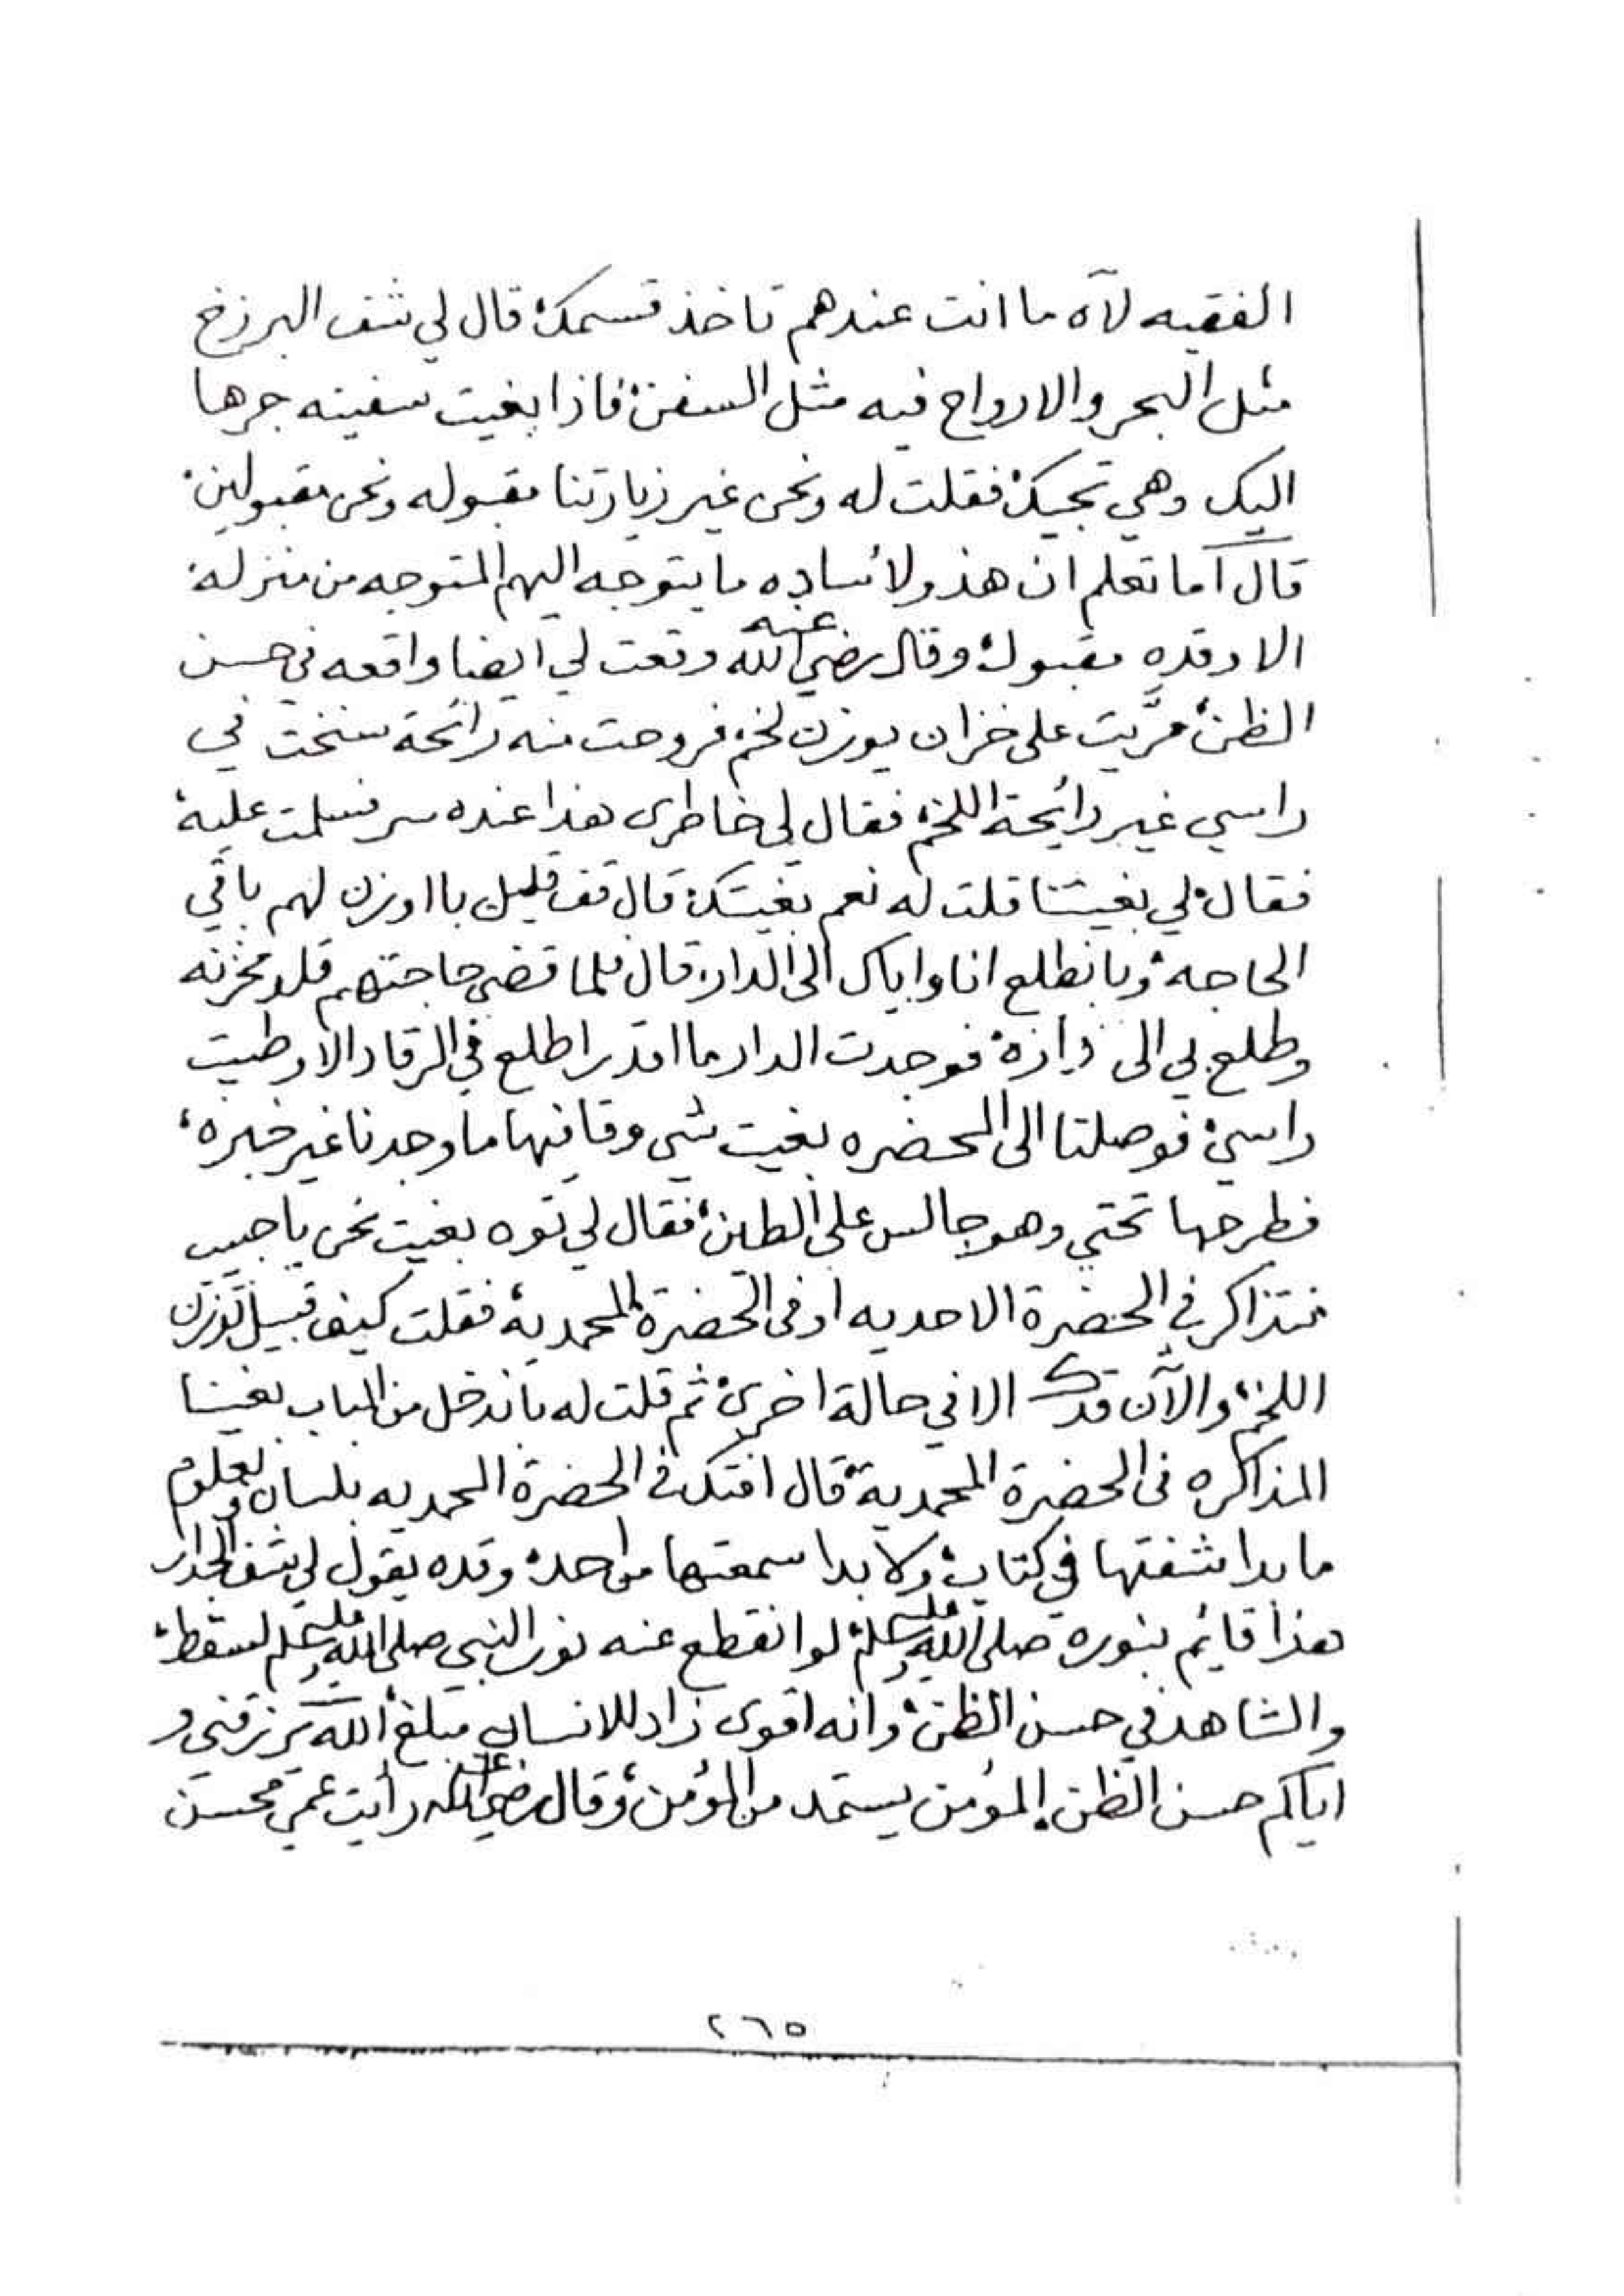 الفقيه لآه ما انت عندهم تاخذ قسمك، قال لي شف البرزخ
مثل البحر والارواح فيه مثل السفن، فاذا بغيت سفينه جرها
اليك وهي تجيك، فقلت له ونحن غير زيارتنا مقبوله ونحن مقبولين،
قال اما تعلم ان هذولا ساده ما يتوجه اليهم المتوجه من منزله
الا وقده مقبول، وقال رضي الله عنه وقعت لي ايضا واقعه في حسن
الظن، مرَّيت على خزان يوزن لخم، فروحت منه رائحة سنخت في
راسي غير رائحة اللخم، فقال لي خاطري هذا عنده سر فسلمت عليه،
فقال لي بغيتنا قلت له نعم بغيتك، قال قف قليل با اوزن لهم باقي
الحاجه، وبانطلع انا واياك الى الدار، قال فلما قضى حاجتهم قلد مخزنه
وطلع بي الى داره، فوجدت الدار ما اقدر اطلع في الرقاد الا وطيت
راسي، فوصلنا الى المحضره بغيت شي وقا فيها ما وجدنا غير خبره،
فطرحها تحتي وهو جالس على الطين، فقال لي توه بغيت نحن يا حبيب
نتذاكر في الحضرة الاحديه او في الحضرة المحمدية، فقلت كيف قبيل توزن
اللخم، والآن قدك الا في حالة اخرى، ثم قلت له باندخل من الباب بغينا
المذاكره في الحضرة المحمدية، قال افتك في الحضرة المحمديه بلسان وبعلوم
ما بدا شفتها في كتاب، ولا بدا سمعتها من احد، وقده يقول لي شف الجدار
هذا قايم بنوره صلى الله عليه وسلم، لو انقطع عنه نور النبي صلى الله عليه وسلم لسقط،
والشاهد في حسن الظن، وانه اقوى زاد للانسان مبلغ، الله يرزقني و
اياكم حسن الظن، المؤمن يستمد من المؤمن، وقال رضي الله عنه رأيت عمي محسن
٢٦٥